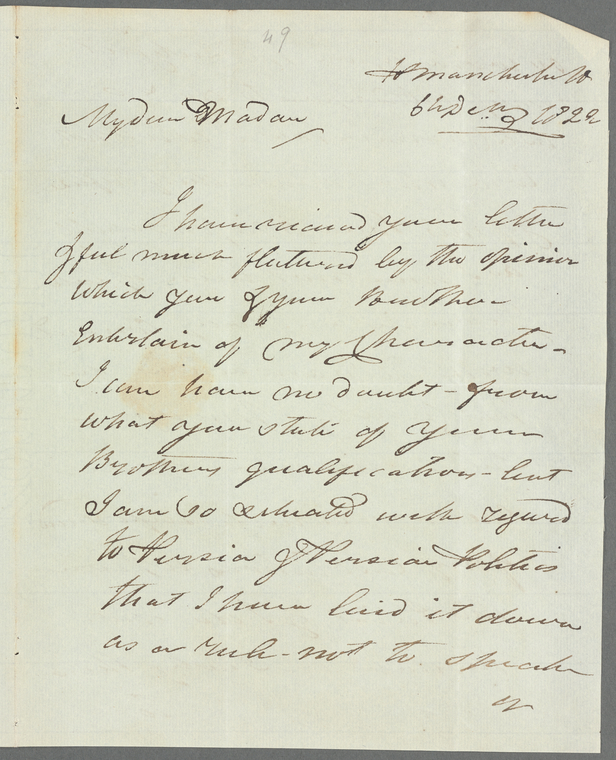 49
Manchester St
6th Decr 1822
My dear Madam
I have received your letter
& feel much flattered by the opinion
which you & your Brother
Entertain of my Character -
I can have no doubt - from
what you state of your
Brothers qualifications - but
I am so situated with regard
to Persia & Persian Politics
that I have laid it down
as a rule - not to speak
or